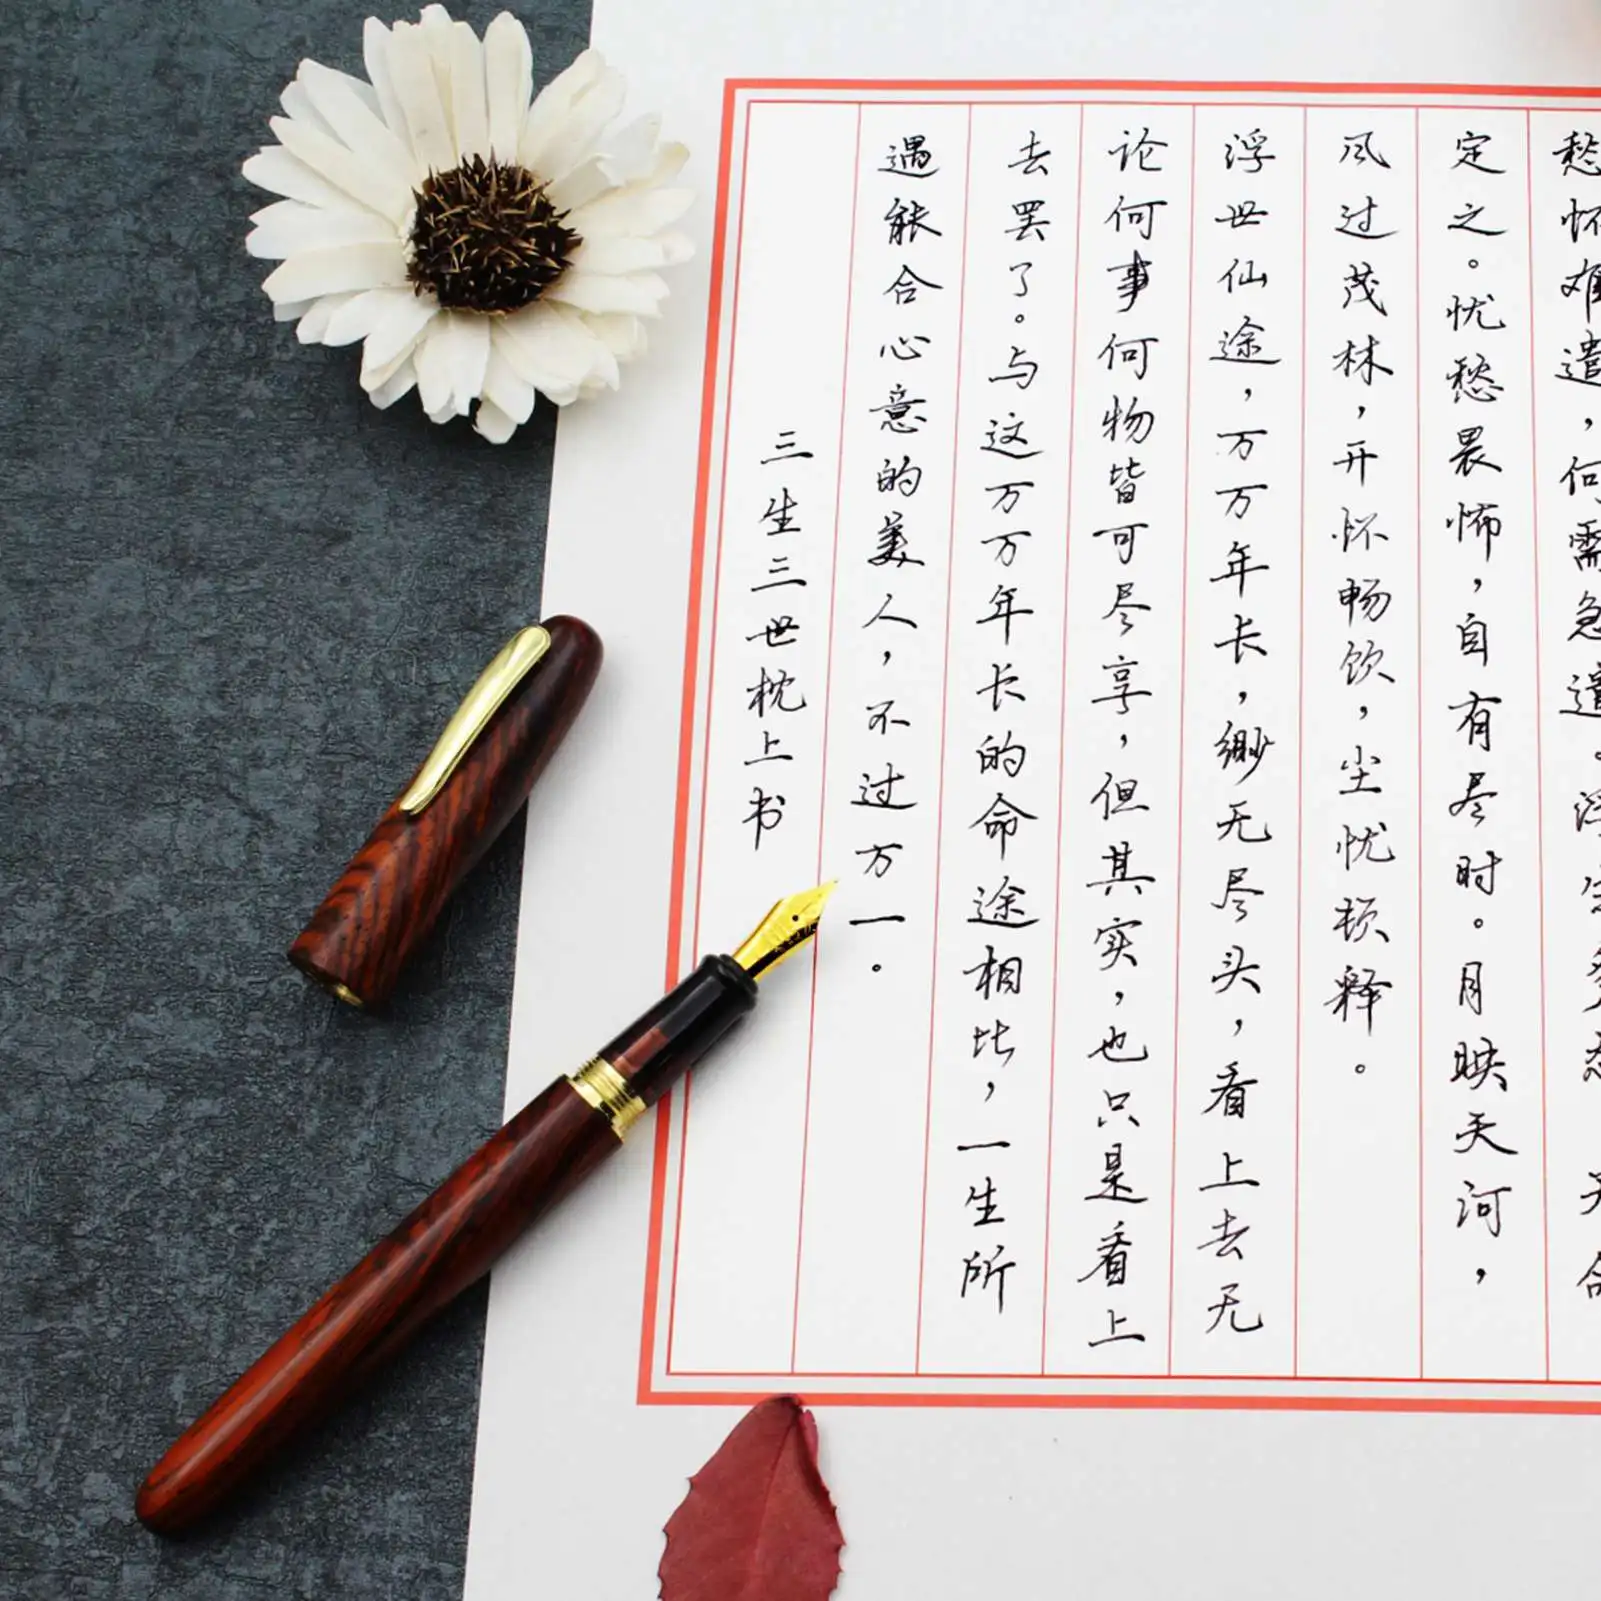 愁怀难遣，何需急遣。浮
定之。忧愁畏怖，自有尽时。月映天河，
风过茂林，开怀畅饮，尘忧顿释。
浮世仙途，万万年长，缈无尽头，看上去无
论何事何物皆可尽享，但其实，也只是看上
去罢了。与这万万年长的命途相比，一生所
遇能合心意的美人，不过万一。
三生三世枕上书